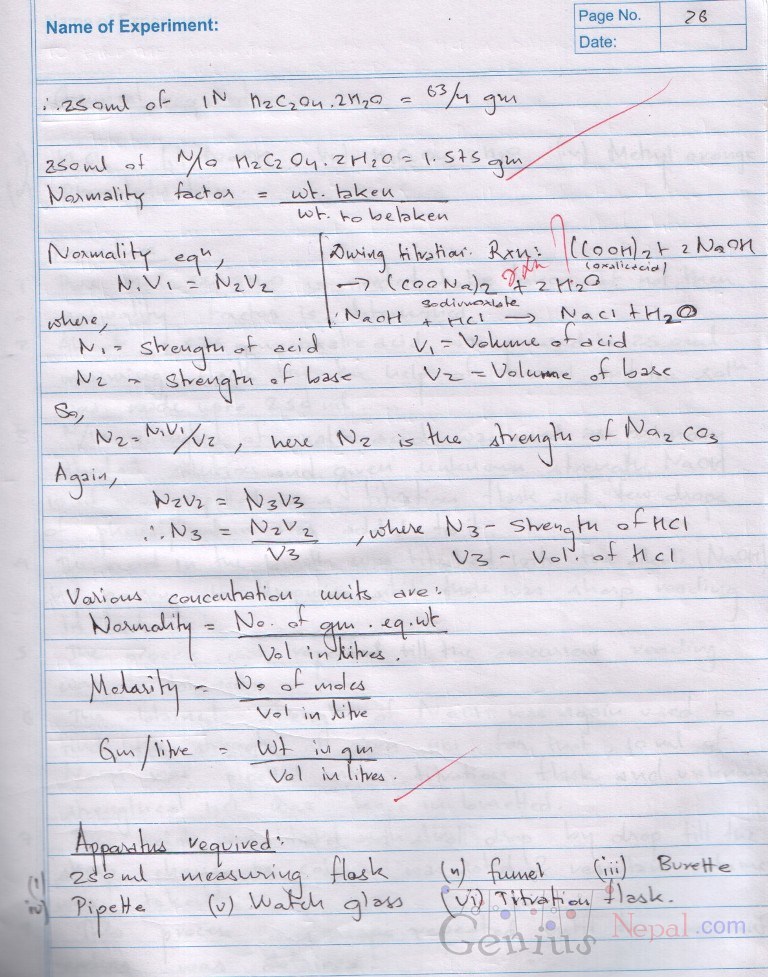 Name of Experiment:
Page No. 28
Date:
∴ 250ml of 1N H2C2O4.2H2O = 63/4 gm
250ml of N/10 H2C2O4.2H2O = 1.575 gm
Normality factor = wt. taken / wt. to be taken
Normality eqn,
N1V1 = N2V2
During titration. Rxn: (COOH)2 + 2NaOH
(oxalic acid)
→ (COONa)2 + 2H2O
rxn
sodium oxalate
: NaOH + HCl → NaCl + H2O
where,
N1 = Strength of acid V1 = Volume of acid
N2 = Strength of base V2 = Volume of base
So,
N2 = N1V1/V2, here N2 is the strength of Na2CO3
Again,
N2V2 = N3V3
∴ N3 = N2V2 / V3, where N3 - Strength of HCl
V3 - Vol. of HCl
Various concentration units are:
Normality = No. of gm. eq. wt / Vol in litres.
Molarity = No of moles / Vol in litre
Gm/litre = Wt in gm / Vol in litres.
Apparatus required:
(i) 250ml measuring flask (ii) funnel (iii) Burette
iv) Pipette (v) Watch glass (vi) Titration flask.
Genius Nepal.com